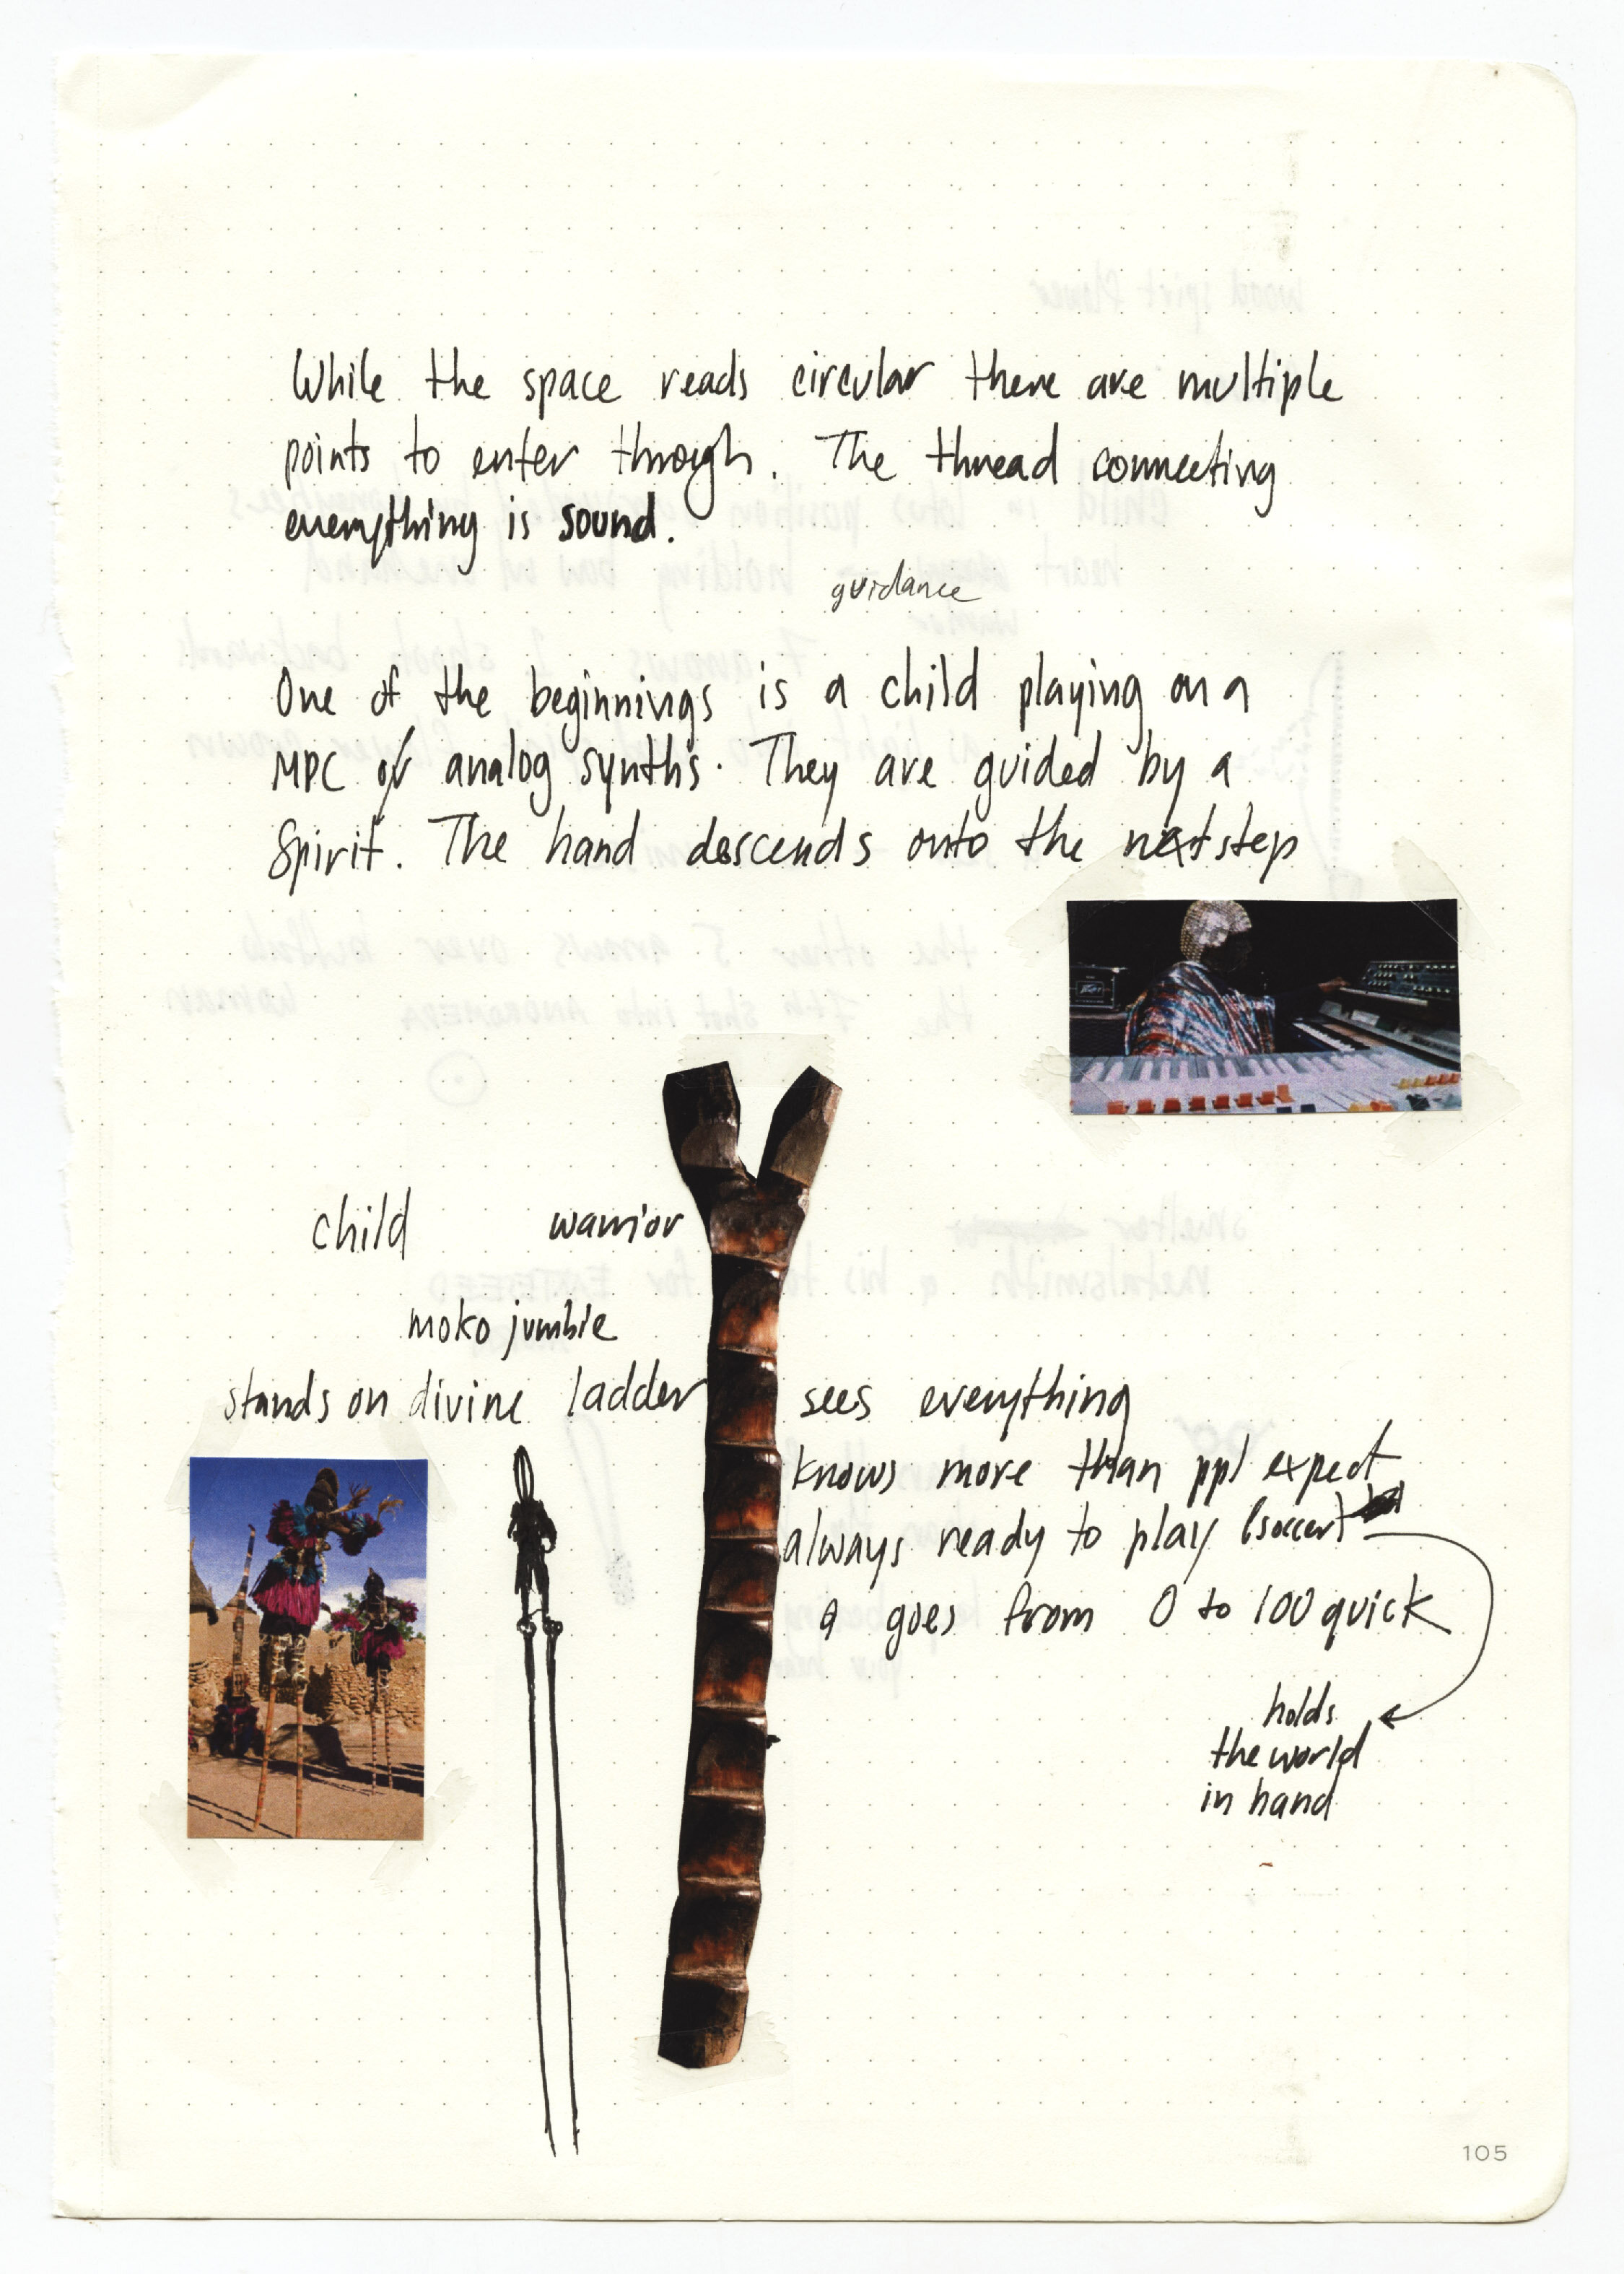 While the space reads circular there are multiple
points to enter through. The thread connecting
everything is sound.
guidance
One of the beginnings is a child playing on a
MPC or analog synths. They are guided by a
Spirit. The hand descends onto the next step
child warrior
moko jumbie
stands on divine ladder
sees everything
knows more than ppl expect
always ready to play (soccer)
& goes from 0 to 100 quick
holds
the world
in hand
105